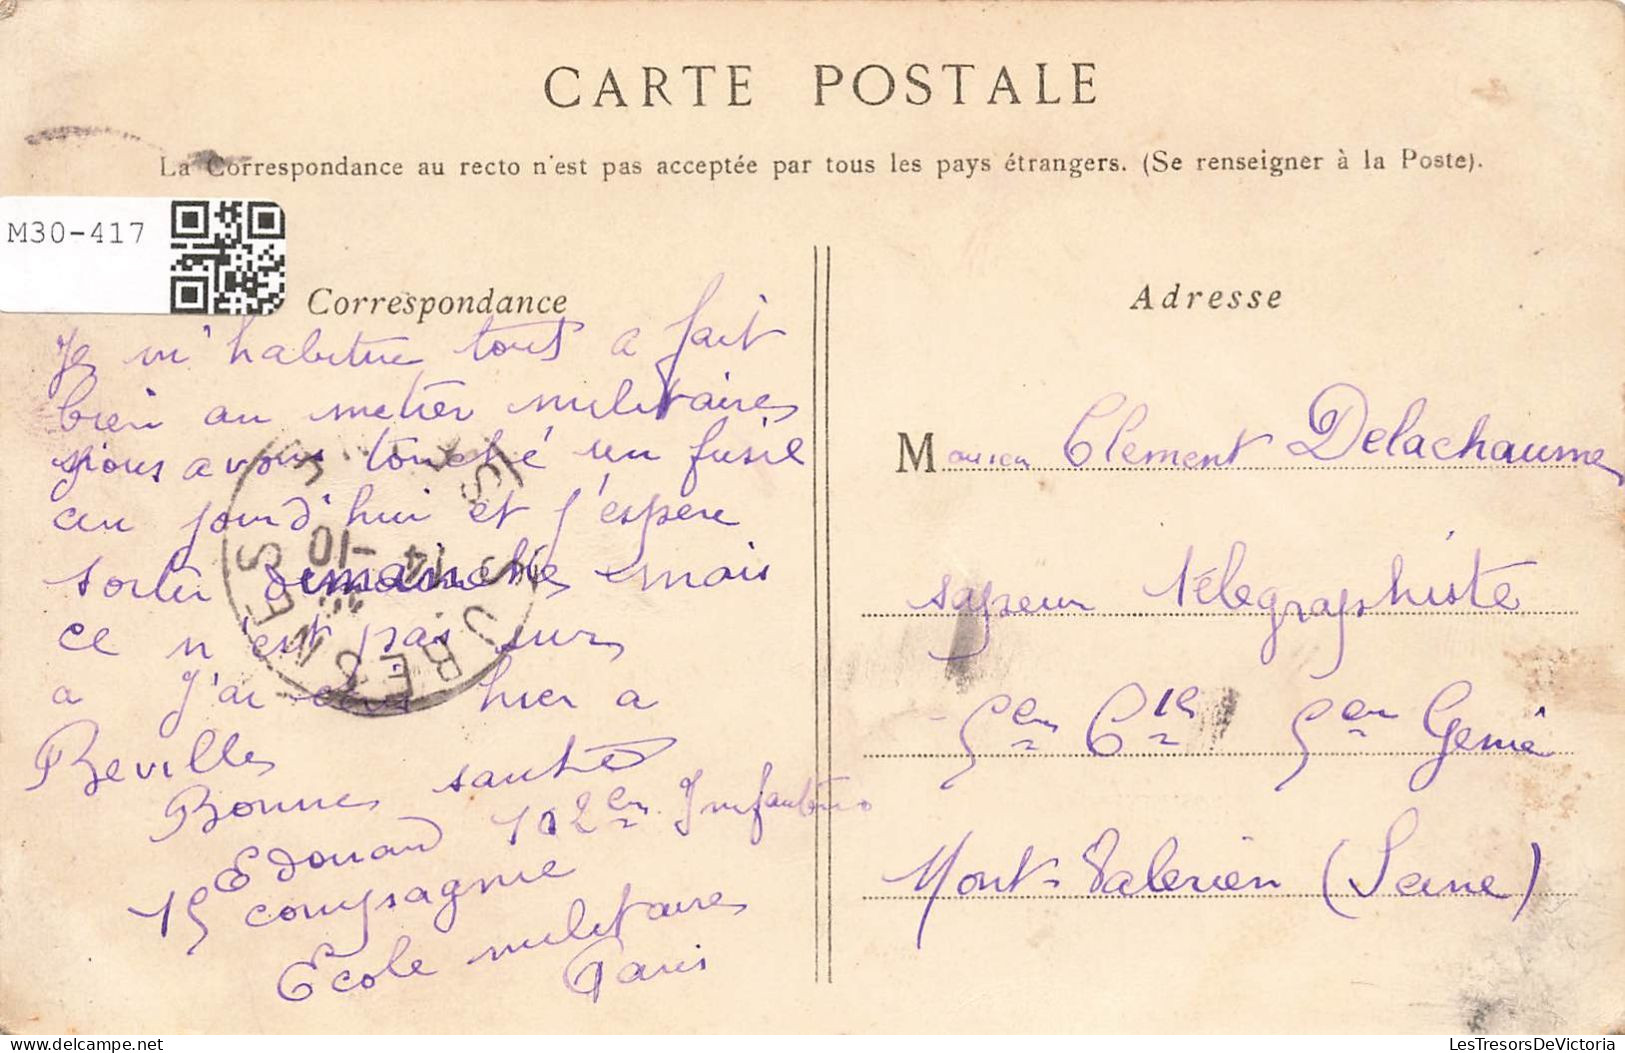 CARTE POSTALE
La Correspondance au recto n'est pas acceptée par tous les pays étrangers. (Se renseigner à la Poste).
M30-417
Correspondance
Je m'habitue tout a fait
bien au metier militaires
nous avons touché un fusil
au jourd'hui et j'espere
sortir dimanche mais
ce n'est pas sur
a J'ai hier a
Beville
Bonne santé
Edouard 102em Infanterie
15 compagnie
Ecole militaires
Paris
SURESNES
10
14
Adresse
Monsieur Clement Delachaume
sapeur télegraphiste
5em Cie 5em Genie
Mont-Valerien (Seine)
delcampe.net
LesTresorsDeVictoria